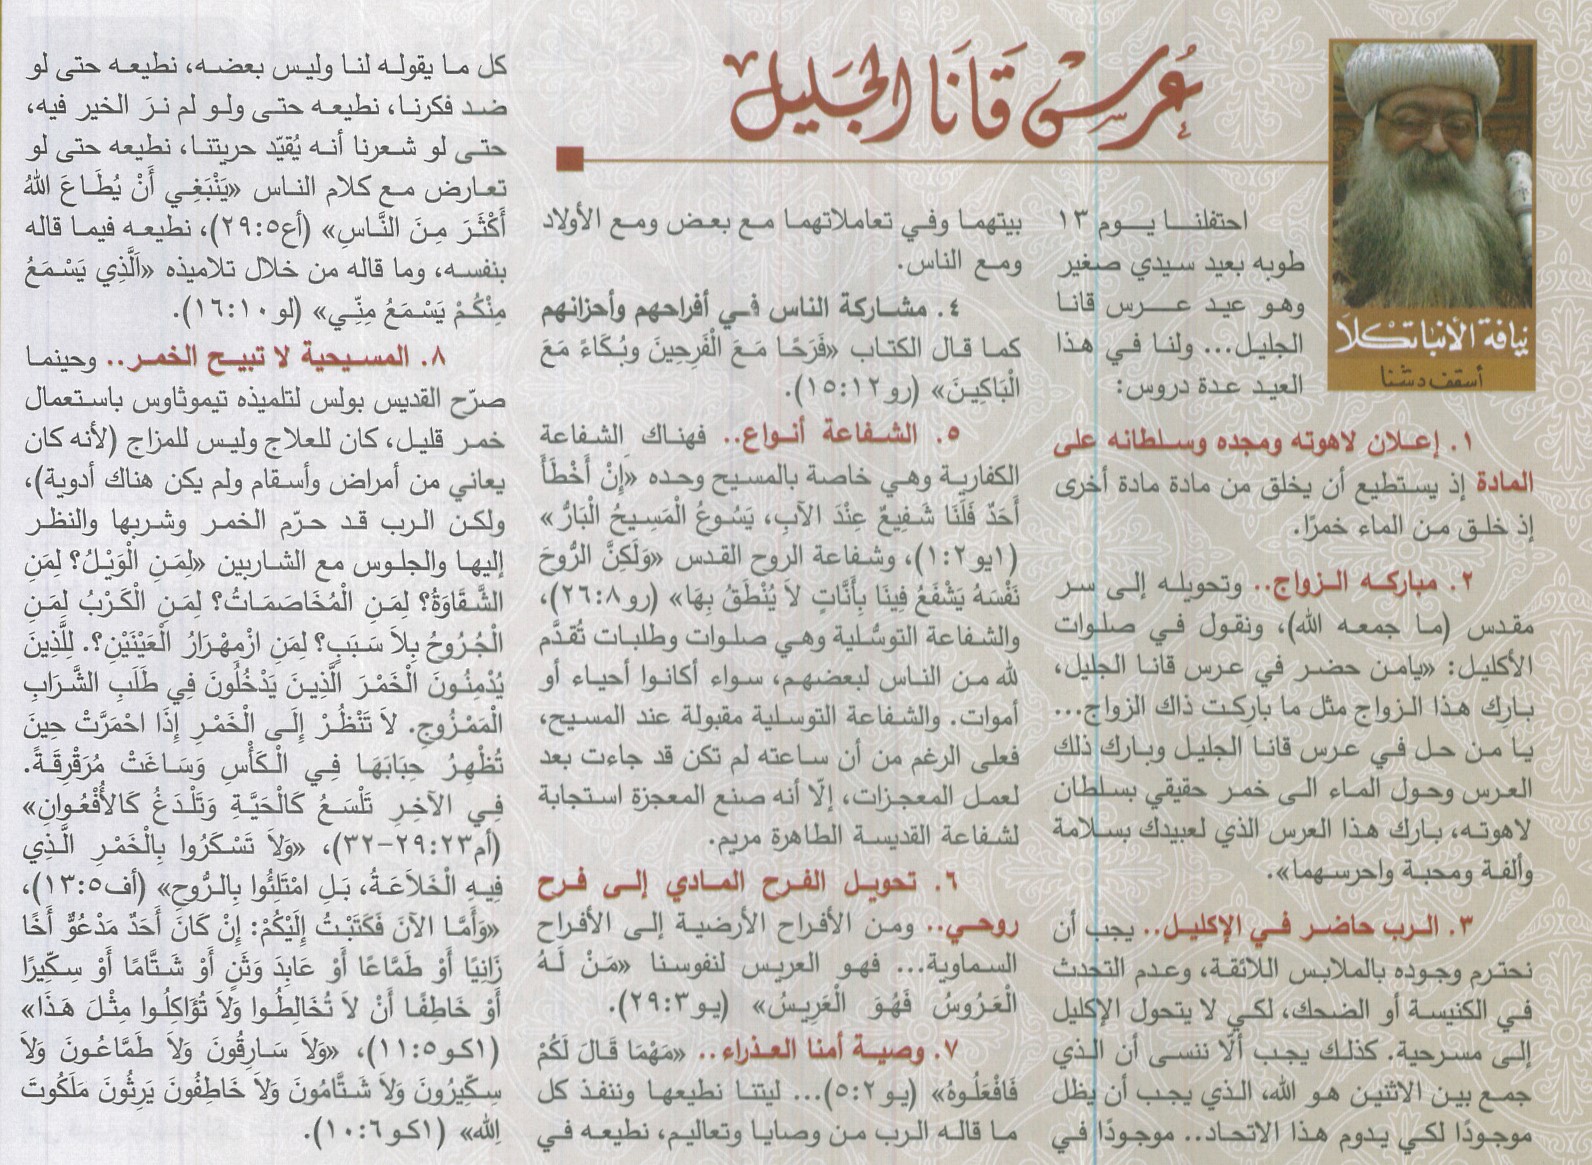 عُرس قَانَا الجَليل
نيافة الأنبا تكلا
أسقف دشنا
احتفلنا يوم ١٣
طوبه بعيد سيدي صغير
وهو عيد عرس قانا
الجليل... ولنا في هذا
العيد عدة دروس:
١. إعلان لاهوته ومجده وسلطانه على
المادة إذ يستطيع أن يخلق من مادة مادة أخرى
إذ خلق من الماء خمرًا.
٢. مباركه الزواج.. وتحويله إلى سر
مقدس (ما جمعه الله)، ونقول في صلوات
الأكليل: «يامن حضر في عرس قانا الجليل،
بارك هذا الزواج مثل ما باركت ذاك الزواج...
يا من حل في عرس قانا الجليل وبارك ذلك
العرس وحول الماء الى خمر حقيقي بسلطان
لاهوته، بارك هذا العرس الذي لعبيدك بسلامة
وألفة ومحبة واحرسهما».
٣. الرب حاضر في الإكليل.. يجب أن
نحترم وجوده بالملابس اللائقة، وعدم التحدث
في الكنيسة أو الضحك، لكي لا يتحول الإكليل
إلى مسرحية. كذلك يجب ألّا ننسى أن الذي
جمع بين الاثنين هو الله، الذي يجب أن يظل
موجودًا لكي يدوم هذا الاتحاد.. موجودًا في
بيتهما وفي تعاملاتهما مع بعض ومع الأولاد
ومع الناس.
٤. مشاركة الناس في أفراحهم وأحزانهم
كما قال الكتاب «فَرَحًا مَعَ الْفَرِحِينَ وبُكَاءً مَعَ
الْبَاكِينَ» (رو١٥:١٢).
٥. الشفاعة أنواع.. فهناك الشفاعة
الكفارية وهي خاصة بالمسيح وحده «إِنْ أَخْطَأَ
أَحَدٌ فَلَنَا شَفِيعٌ عِنْدَ الآبِ، يَسُوعُ الْمَسِيحُ الْبَارُّ»
(١يو١:٢)، وشفاعة الروح القدس «وَلَكِنَّ الرُّوحَ
نَفْسَهُ يَشْفَعُ فِينَا بِأَنَّاتٍ لاَ يُنْطَقُ بِهَا» (رو٢٦:٨)،
والشفاعة التوسُّلية وهي صلوات وطلبات تُقدَّم
لله من الناس لبعضهم، سواء أكانوا أحياء أو
أموات. والشفاعة التوسلية مقبولة عند المسيح،
فعلى الرغم من أن ساعته لم تكن قد جاءت بعد
لعمل المعجزات، إلّا أنه صنع المعجزة استجابة
لشفاعة القديسة الطاهرة مريم.
٦. تحويل الفرح المادي إلى فرح
روحي.. ومن الأفراح الأرضية إلى الأفراح
السماوية... فهو العريس لنفوسنا «مَنْ لَهُ
الْعَرُوسُ فَهُوَ الْعَرِيسُ» (يو٢٩:٣).
٧. وصية أمنا العذراء.. «مَهْمَا قَالَ لَكُمْ
فَافْعَلُوهُ» (يو٥:٢)... ليتنا نطيعها وننفذ كل
ما قاله الرب من وصايا وتعاليم، نطيعه في
كل ما يقوله لنا وليس بعضه، نطيعه حتى لو
ضد فكرنا، نطيعه حتى ولو لم نرَ الخير فيه،
حتى لو شعرنا أنه يُقيّد حريتنا، نطيعه حتى لو
تعارض مع كلام الناس «يَنْبَغِي أَنْ يُطَاعَ اللهُ
أَكْثَرَ مِنَ النَّاسِ» (أع٢٩:٥)، نطيعه فيما قاله
بنفسه، وما قاله من خلال تلاميذه «اَلَّذِي يَسْمَعُ
مِنْكُمْ يَسْمَعُ مِنِّي» (لو١٦:١٠).
٨. المسيحية لا تبيح الخمر.. وحينما
صرّح القديس بولس لتلميذه تيموثاوس باستعمال
خمر قليل، كان للعلاج وليس للمزاج (لأنه كان
يعاني من أمراض وأسقام ولم يكن هناك أدوية)،
ولكن الرب قد حرّم الخمر وشربها والنظر
إليها والجلوس مع الشاربين «لِمَنِ الْوَيْلُ؟ لِمَنِ
الشَّقَاوَةُ؟ لِمَنِ الْمُخَاصَمَاتُ؟ لِمَنِ الْكَرْبُ لِمَنِ
الْجُرُوحُ بِلاَ سَبَبٍ؟ لِمَنِ ازْمِهْرَارُ الْعَيْنَيْنِ؟. لِلَّذِينَ
يُدْمِنُونَ الْخَمْرَ الَّذِينَ يَدْخُلُونَ فِي طَلَبِ الشَّرَابِ
الْمَمْزُوجِ. لاَ تَنْظُرْ إِلَى الْخَمْرِ إِذَا احْمَرَّتْ حِينَ
تُظْهِرُ حِبَابَهَا فِي الْكَأْسِ وَسَاغَتْ مُرَقْرِقَةً.
فِي الآخِرِ تَلْسَعُ كَالْحَيَّةِ وَتَلْدَغُ كَالأُفْعُوانِ»
(أم٢٩:٢٣-٣٢)، «وَلاَ تَسْكَرُوا بِالْخَمْرِ الَّذِي
فِيهِ الْخَلاَعَةُ، بَلِ امْتَلِئُوا بِالرُّوحِ» (أف١٣:٥)،
«وَأَمَّا الآنَ فَكَتَبْتُ إِلَيْكُمْ: إِنْ كَانَ أَحَدٌ مَدْعُوٌّ أَخًا
زَانِيًا أَوْ طَمَّاعًا أَوْ عَابِدَ وَثَنٍ أَوْ شَتَّامًا أَوْ سِكِّيرًا
أَوْ خَاطِفًا أَنْ لاَ تُخَالِطُوا وَلاَ تُؤَاكِلُوا مِثْلَ هَذَا»
(١كو١١:٥)، «وَلاَ سَارِقُونَ وَلاَ طَمَّاعُونَ وَلاَ
سِكِّيرُونَ وَلاَ شَتَّامُونَ وَلاَ خَاطِفُونَ يَرِثُونَ مَلَكُوتَ
اللهِ» (١كو١٠:٦).